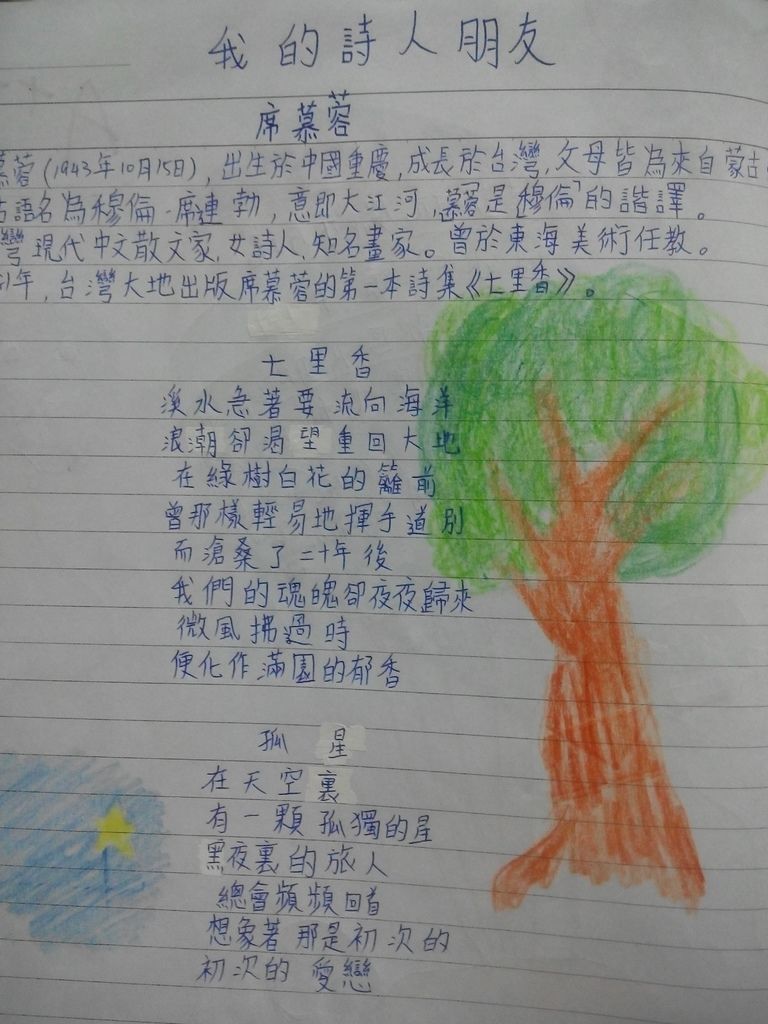 我的詩人朋友
席慕蓉
慕蓉(1943年10月15日),出生於中國重慶,成長於台灣,父母皆為來自蒙古
古語名為穆倫·席連勃,意即大江河,慕蓉是「穆倫」的諧譯。
灣現代中文散文家,女詩人,知名畫家。曾於東海美術任教。
81年,台灣大地出版席慕蓉的第一本詩集《七里香》。
七里香
溪水急著要流向海洋
浪潮卻渴望重回大地
在綠樹白花的籬前
曾那樣輕易地揮手道別
而滄桑了二十年後
我們的魂魄卻夜夜歸來
微風拂過時
便化作滿園的郁香
孤星
在天空裏
有一顆孤獨的星
黑夜裏的旅人
總會頻頻回首
想象著那是初次的
初次的愛戀